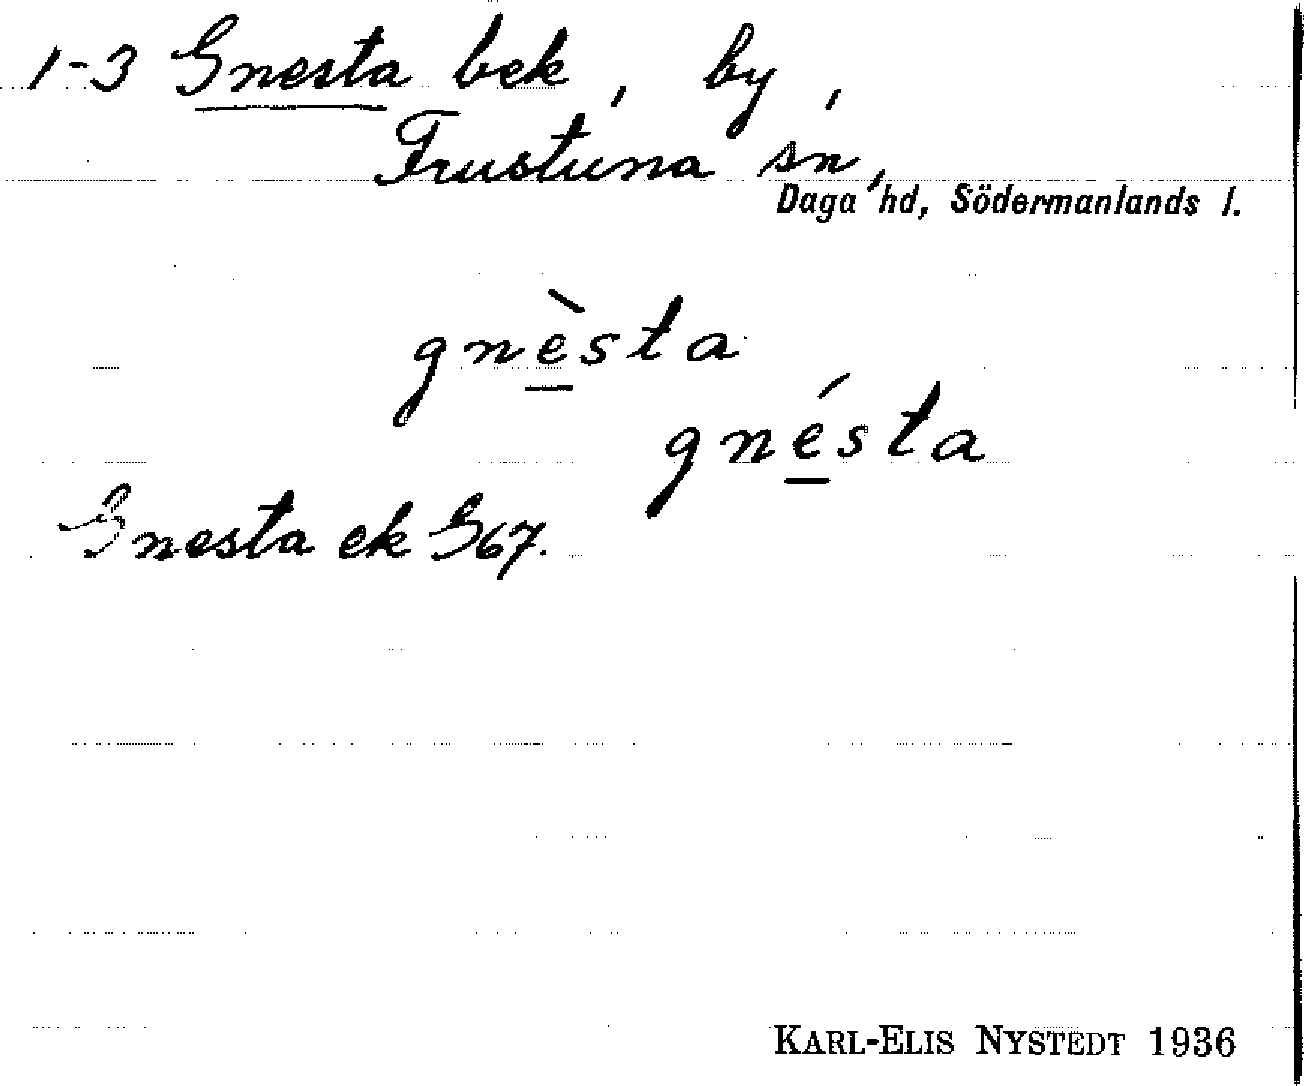 1-3 Gnesta bek, by,
Frustuna sn,
Daga hd, Södermanlands l.
gnèsta
gnésta
Gnesta ek G67.
KARL-ELIS NYSTEDT 1936